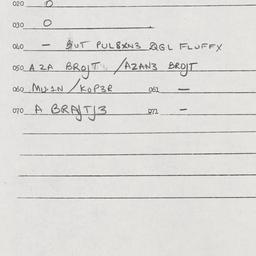 020 0
030 0
040 – BUT PULBXN3 QGL FLUFFX
050 A2A BROJT / AZAN3 BROJT
060 MU1N / KOP3R 061 –
070 A BRAJTJ3 071 –